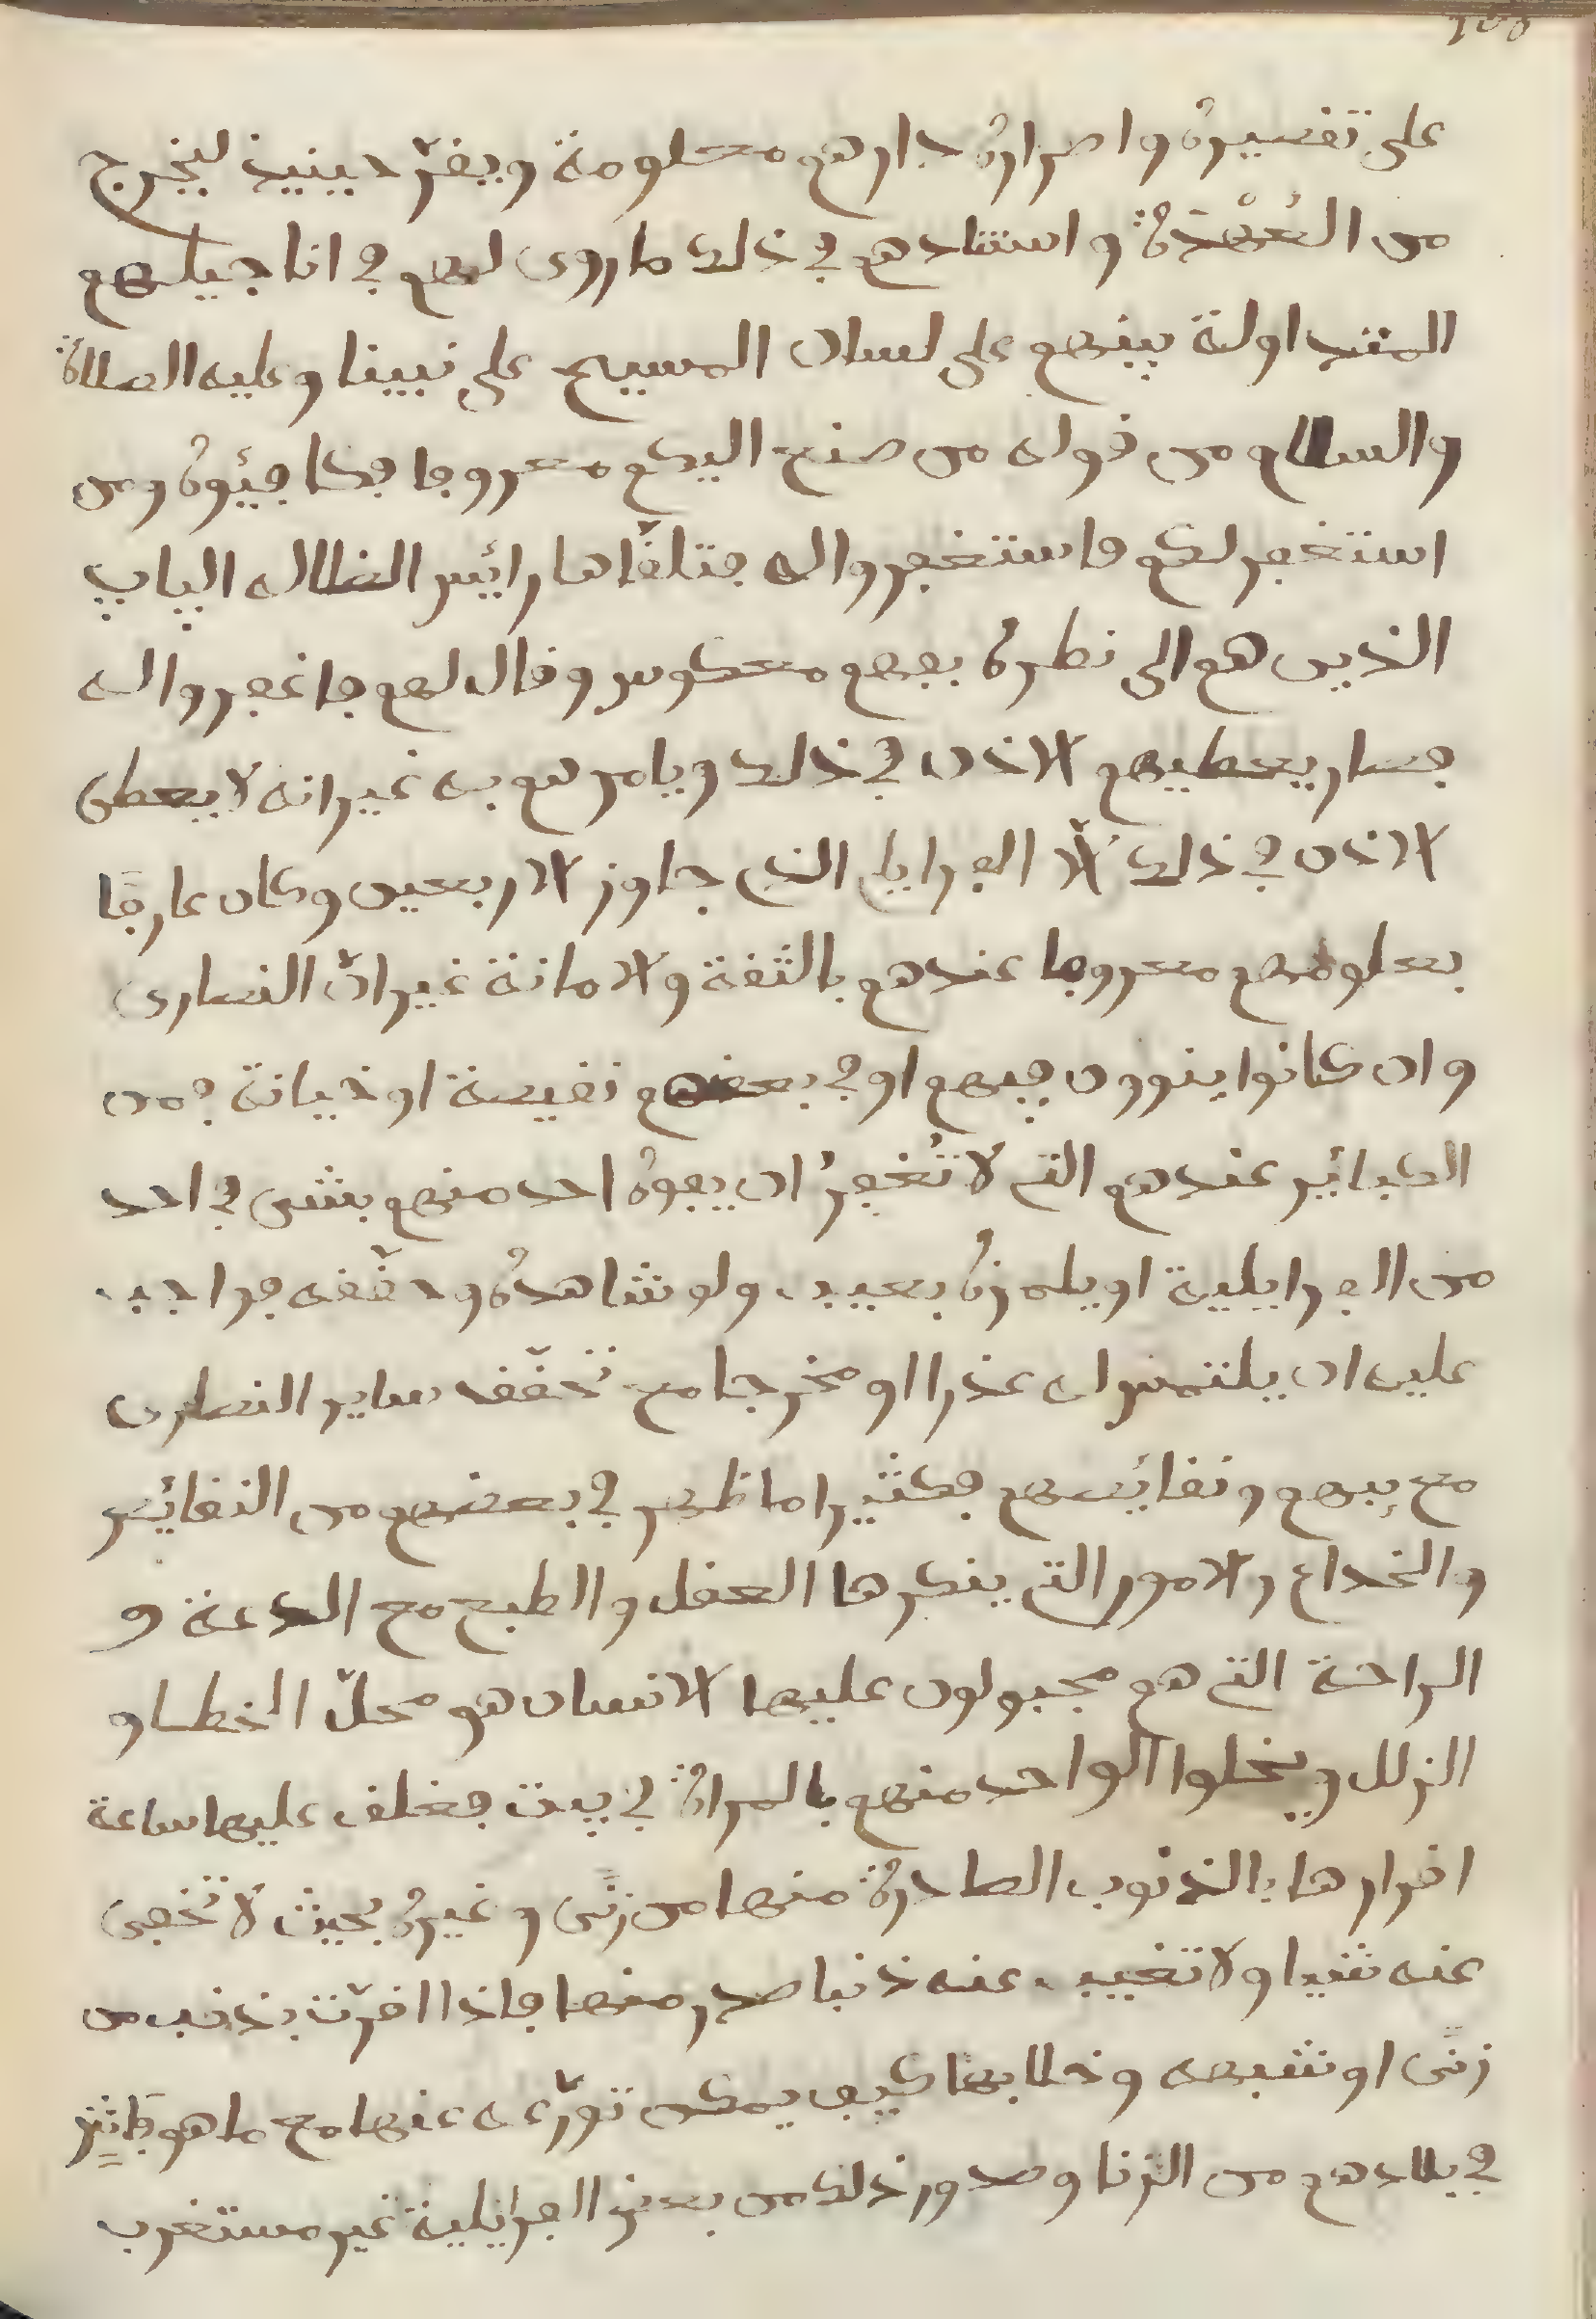 على تقصيره واصراره دارهم معلومة ويفرّ حينيذ ليخرج
من العُهْدَة واستنادهم في ذلك ما روى لهم في اناجيلهم
المتداولة بينهم على لسان المسيح على نبينا وعليه الصلاة
والسلام من قوله من صنع اليكم معروفا فكافيئوه ومن
استغفر لكم فاستغفروا له فتلقّاها رائيس الضلال الپاپ
الذين هم الى نظره بفهم معكوس وقال لهم فاغفروا له
فصار يعطيهم الاذن في ذلك ويامرهم به غير انه لا يعطى
الاذن في ذلك الّا الفرايلي الذي جاوز الاربعين وكان عارفًا
بعلومهم معروفا عندهم بالثقة والامانة غير انّ النصارى
وان كانوا ينوون فيهم او في بعضهم نقيصة او خيانة فمن
الكبائير عندهم التي لا تُغفرُ ان يفوه احد منهم بشى في احد
من الفرايلية او يلمزه بعيب ولو شاهده وحقّقه فواجب
عليه ان يلتمس له عذرا او مخرجا مع تحقّقه ساير النصارى
معيبهم ونقايصهم فكثيرا ما ظهر في بعضهم من النقائيص
والخداع والامور التي ينكرها العقل والطبع مع الدعة و
الراحة التي هم مجبولون عليها الانسان هو محلّ الخطا و
الزلل ويخلوا الواحد منهم بالمراة في بيت فغلق عليها ساعة
اقرارها بالذنوب الصادرة منها من زنًى وغيره بحيث لا تخفى
عنه شيا ولا تغيب عنه ذنبا صدر منها فاذا اقرّت بذنب من
زنًى او شبهه وخلا بها كيف يمكن تورّعه عنها مع ما هو فَاشٍ
في بلادهم من الزنا وصدور ذلك من بعض الفرايلية غير مستغرب